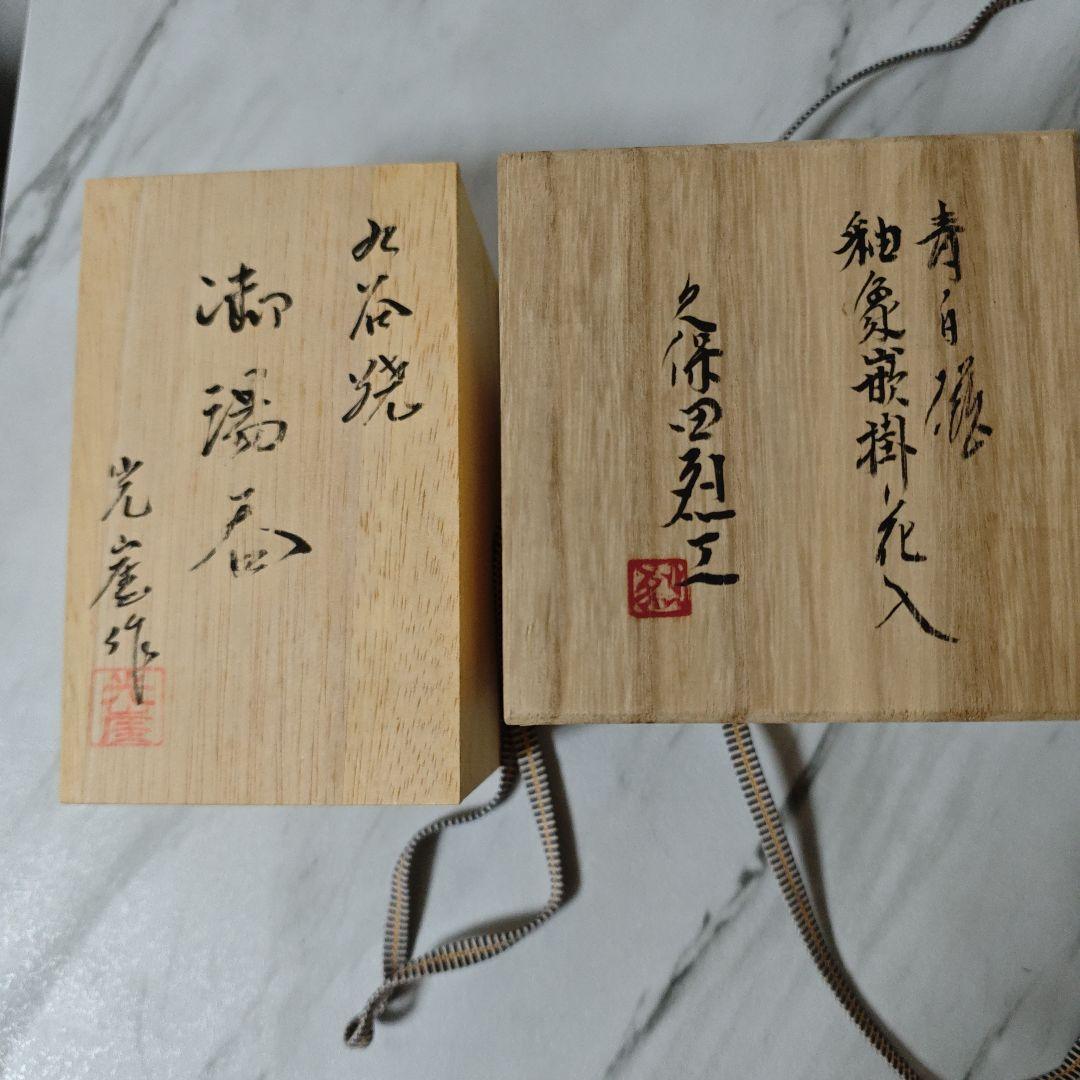 青白磁
釉象嵌掛花入
久保田烈工
烈
九谷焼
御湯呑
光崖作
光崖